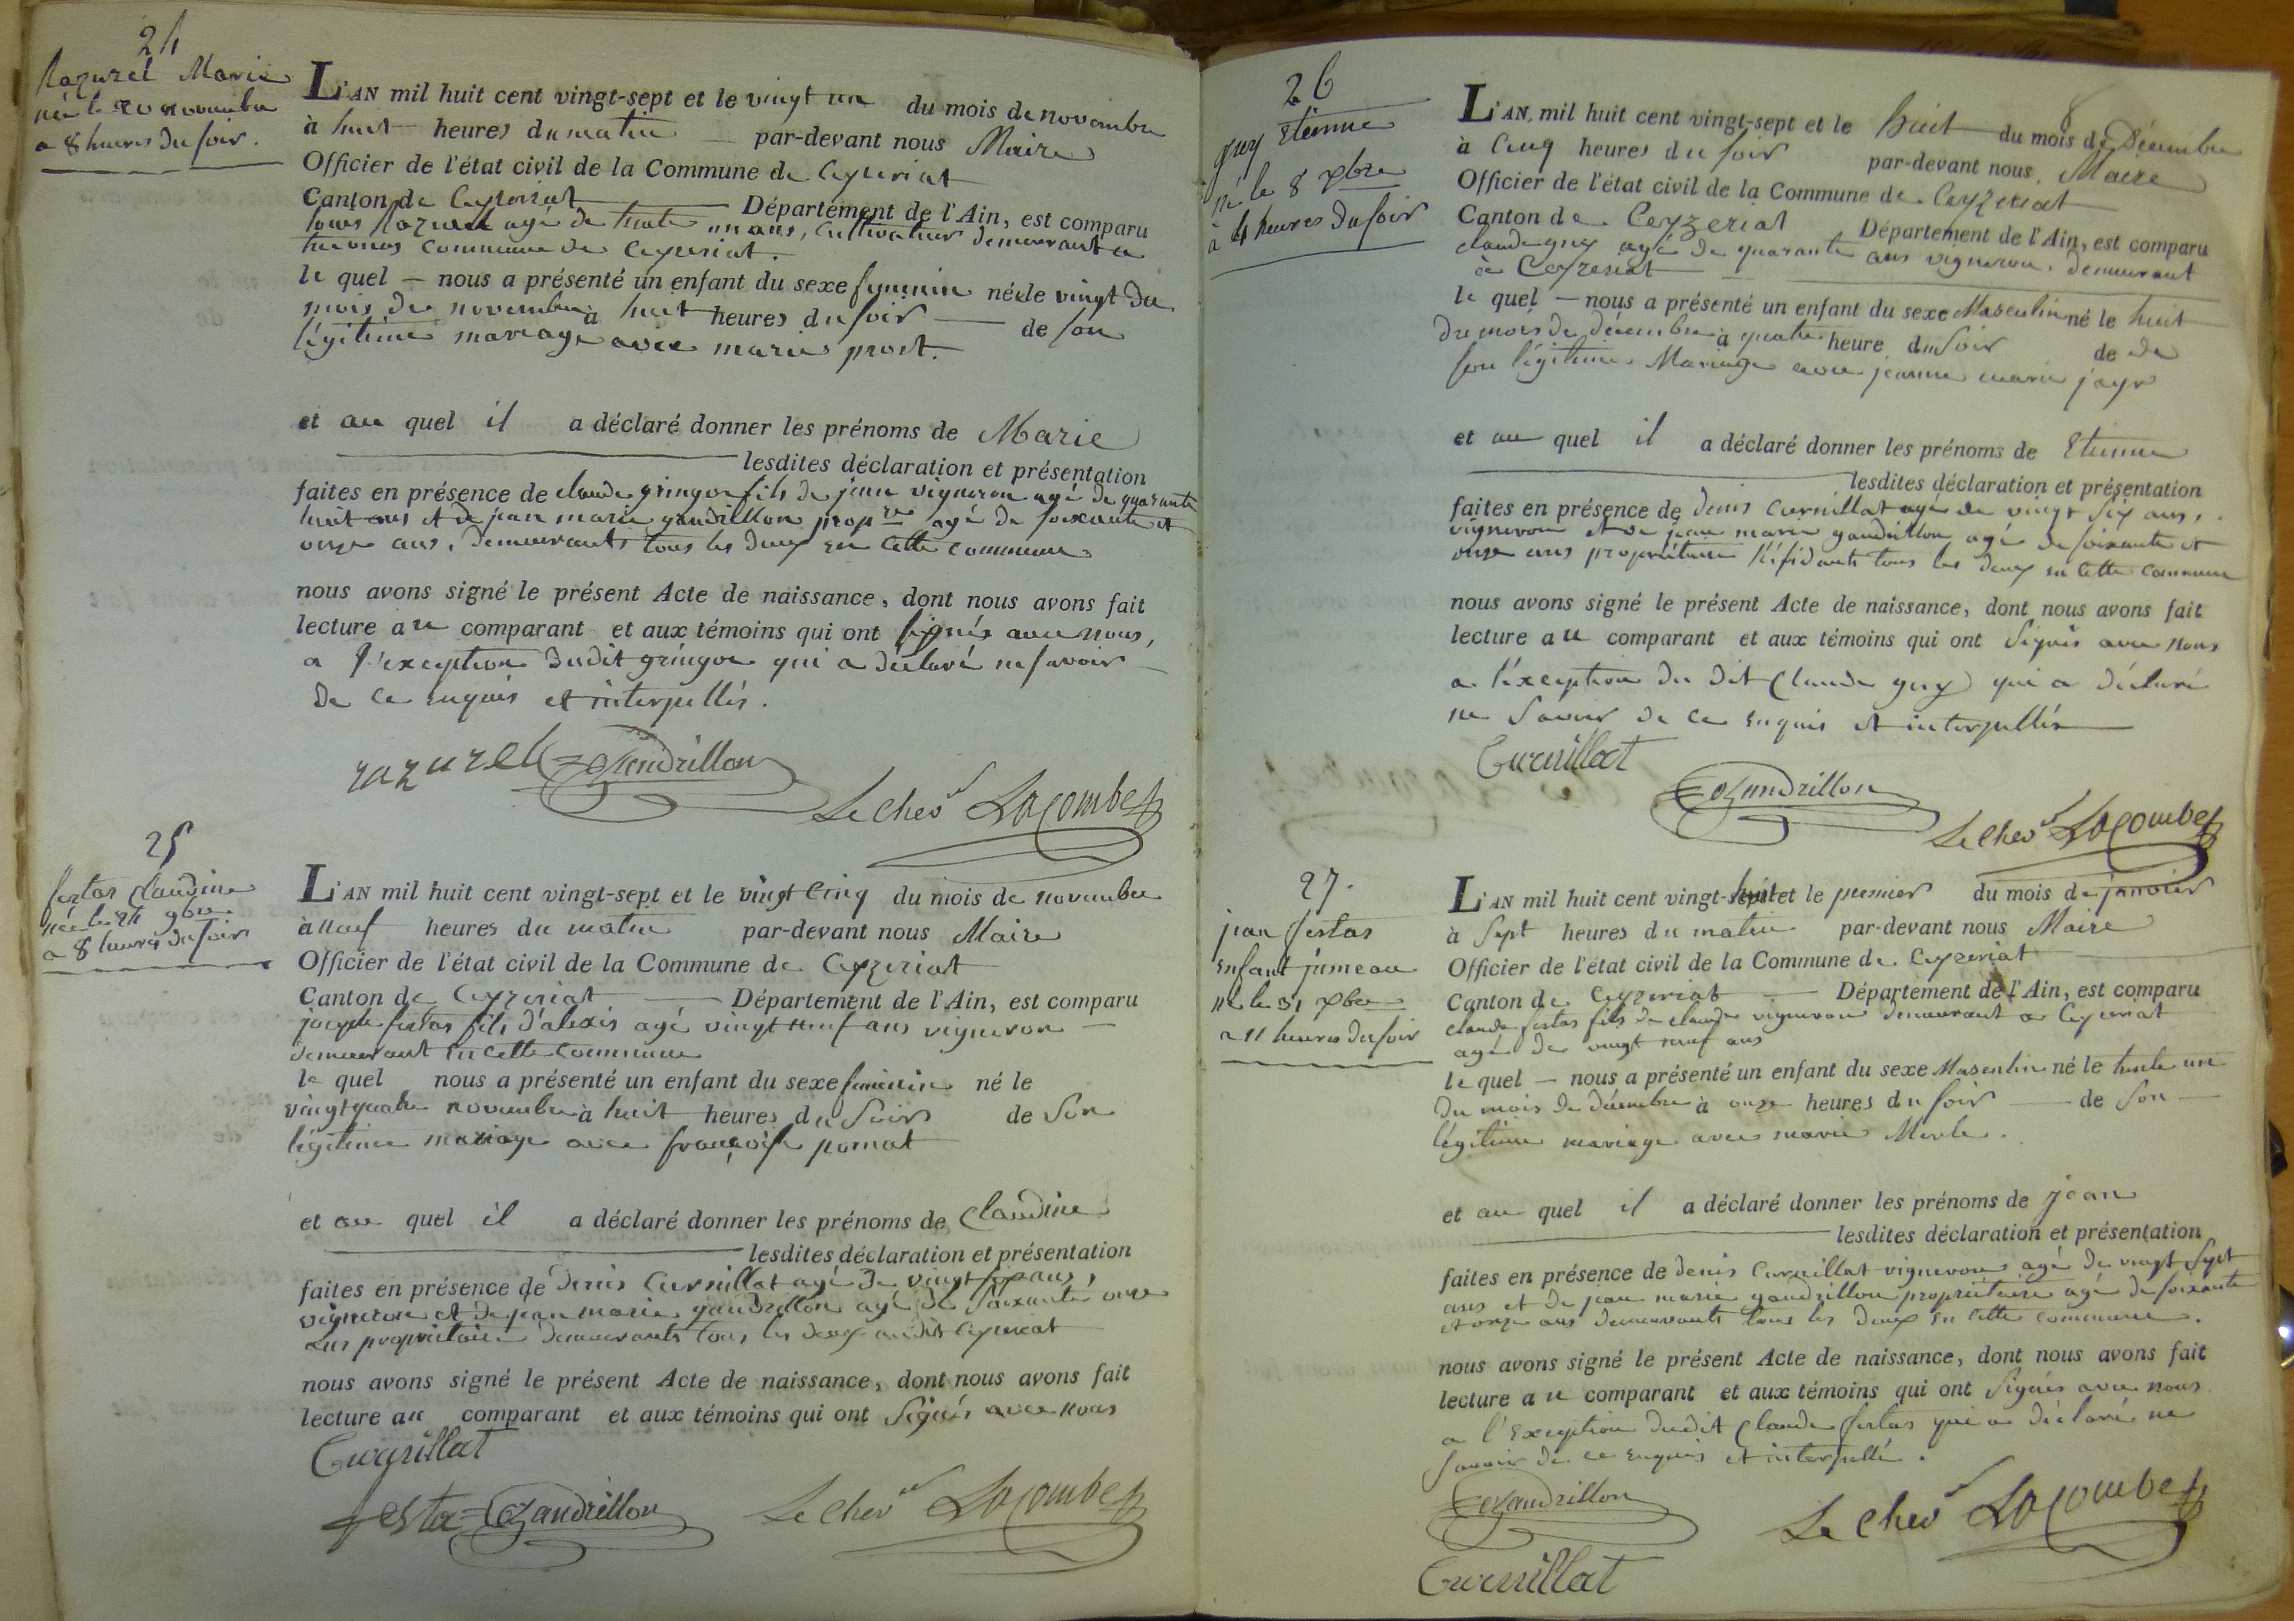 24
Razurel Marie
née le 20 novembre
a 8 heures du soir.
L'AN mil huit cent vingt-sept et le vingt un du mois de novembre
à huit heures du matin par-devant nous Maire
Officier de l'état civil de la Commune de Ceyzeriat
Canton de Ceyzeriat Département de l'Ain, est comparu
louis Razurel agé de trente un ans, cultivateur demeurant a
commune de Ceyzeriat.
le quel nous a présenté un enfant du sexe feminin née le vingt du
mois de novembre à huit heures du soir de son
légitime mariage avec marie prost.
et au quel il a déclaré donner les prénoms de Marie
lesdites déclaration et présentation
faites en présence de claude gringoz fils de jean vigneron agé de quarante
huit ans et de jean marie gaudrillon propre agé de soixante et
onze ans, demeurants tous les deux en cette commune
nous avons signé le présent Acte de naissance, dont nous avons fait
lecture au comparant et aux témoins qui ont signés avec nous,
a l'exception dudit gringoz qui a déclaré ne savoir
de ce enquis et interpellés.
razurel Gaudrillon
Le Chevr Lacombe
25
festas Claudine
née le 24 9bre
a 8 heures du soir
L'AN mil huit cent vingt-sept et le vingt cinq du mois de novembre
à neuf heures du matin par-devant nous Maire
Officier de l'état civil de la Commune de Ceyzeriat
Canton de Ceyzeriat Département de l'Ain, est comparu
joseph festas fils d'alexis agé vingt neuf ans vigneron
demeurant en cette commune
le quel nous a présenté un enfant du sexe feminin né le
vingt quatre novembre à huit heures du soir de son
légitime mariage avec françoise pomat
et au quel il a déclaré donner les prénoms de Claudine
lesdites déclaration et présentation
faites en présence de denis Curnillat agé de vingt six ans,
vigneron et de jean marie gaudrillon agé de soixante onze
ans propriétaire demeurants tous les deux audit Ceyzeriat
nous avons signé le présent Acte de naissance, dont nous avons fait
lecture au comparant et aux témoins qui ont signés avec nous
Curnillat
festa Gaudrillon Le Chevr Lacombe
26
guy Etienne
né le 8 xbre
à 4 heures du soir
L'AN mil huit cent vingt-sept et le huit du mois de Décembre
à Cinq heures du soir par-devant nous Maire
Officier de l'état civil de la Commune de Ceyzeriat
Canton de Ceyzeriat Département de l'Ain, est comparu
claude guy agé de quarante ans vigneron, demeurant
à Ceyzeriat
le quel nous a présenté un enfant du sexe Masculin né le huit
du mois de décembre à quatre heure du soir de de
son légitime Mariage avec jeanne marie jayr
et au quel il a déclaré donner les prénoms de Etienne
lesdites déclaration et présentation
faites en présence de denis Curnillat agé de vingt six ans,
vigneron et de jean marie gaudrillon agé de soixante et
onze ans propriétaire résidants tous les deux en cette commune
nous avons signé le présent Acte de naissance, dont nous avons fait
lecture au comparant et aux témoins qui ont signés avec nous
a l'éxception du dit Claude guy qui a déclaré
ne savoir de ce enquis et interpellés
Curnillat
Gaudrillon
Le Chevr Lacombe
27.
jean festas
Enfant jumeau
né le 31 xbre
a 11 heures du soir
L'AN mil huit cent vingt-huit et le premier du mois de janvier
à sept heures du matin par-devant nous Maire
Officier de l'état civil de la Commune de Ceyzeriat
Canton de Ceyzeriat Département de l'Ain, est comparu
claude festas fils de claude vigneron demeurant a Ceyzeriat
agé de vingt neuf ans
le quel nous a présenté un enfant du sexe Masculin né le trente un
du mois de décembre à onze heures du soir de son
légitime mariage avec marie Merle.
et au quel il a déclaré donner les prénoms de jean
lesdites déclaration et présentation
faites en présence de denis Curnillat vigneron agé de vingt sept
ans et de jean marie gaudrillon propriétaire agé de soixante
et onze ans demeurants tous les deux en cette commune.
nous avons signé le présent Acte de naissance, dont nous avons fait
lecture au comparant et aux témoins qui ont signés avec nous
a l'exception dudit Claude festas qui a déclaré ne
savoir de ce enquis et interpellé.
Gaudrillon
Le Chevr Lacombe
Curnillat